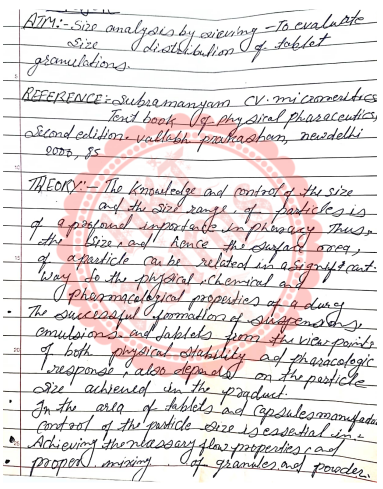 AIM:- Size analysis by sieving - To evaluate
size distribution of tablet
granulations.
REFERENCE:- Subramanyam CV. micromeritics,
Text book of physical pharaceutics,
second edition. vallabh prakashan, newdelhi
2000, 85
THEORY:- The knowledge and control of the size
and the size range of particles is
of a profound importance in pharmacy Thus,
the size, and hence the surface area,
of a particle can be related in a significant.
way to the physical, chemical and
pharmacological properties of a durg
• The successful formation of suspensions,
emulsions and tablets from the view points
of both physical stability and pharacologic
response, also depends on the particle
size achieved in the product.
• In the area of tablets and capsules manufactu
control of the particle size is essential in:-
• Achieving the necssary flow properties, and
• proper mixing of granules and powder.